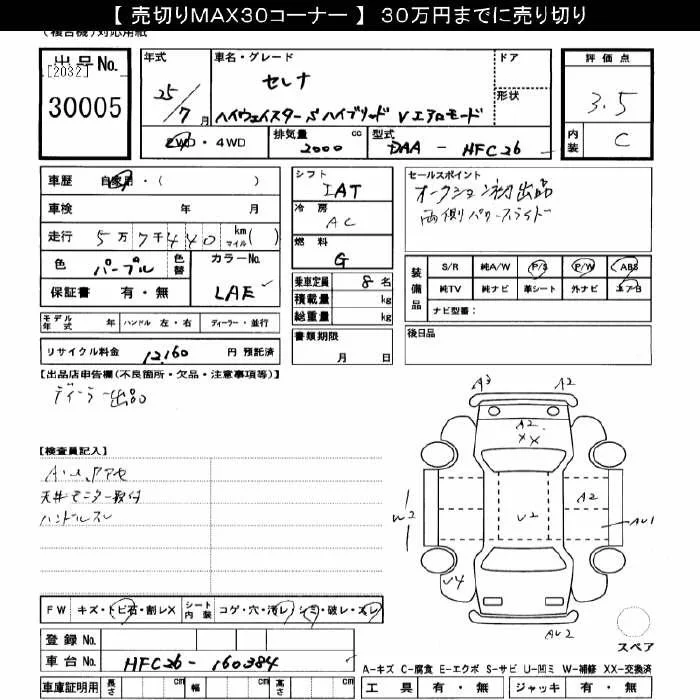 【 売切りMAX30コーナー 】 30万円までに売り切り
(複合機)対応用紙
出品No.
[2032]
30005
年式
25/7月
車名・グレード
セレナ
ハイウェイスターS ハイブリッド Vエアロモード
ドア
形状
2WD・4WD
排気量 2000 cc
型式 DAA - HFC26
評価点
3.5
内装 C
車歴 自家用・( )
車検 年 月
走行 5万7千440 km マイル( )
色 パープル 色替
カラーNo. LAE
保証書 有・無
モデル年式 年 ハンドル 左・右 ディーラー・並行
リサイクル料金 12,160 円 預託済
シフト
IAT
冷房
AC
燃料
G
乗車定員 8 名
積載量 kg
総重量 kg
書類期限
月 日
セールスポイント
オークション初出品
両側パワースライド
装備品
S/R 純A/W P/S P/W ABS
純TV 純ナビ 革シート 外ナビ エアB
ナビ型番:
後日品
【出品店申告欄(不良箇所・欠品・注意事項等)】
ディーラー出品
【検査員記入】
天井モニター取付
ハンドルスレ
FW キズ・トビ石・割レX
シート内装 コゲ・穴・汚レ・シミ・破レ・スレ
登録No.
車台No. HFC26-160384
車庫証明用 長さ cm 幅 cm 高さ cm
A3 A2
A2
XX
W2 U2 A2
AU1
U4
AU2
スペア
A-キズ C-腐食 E-エクボ S-サビ U-凹ミ W-補修 XX-交換済
工具 有・無 ジャッキ 有・無